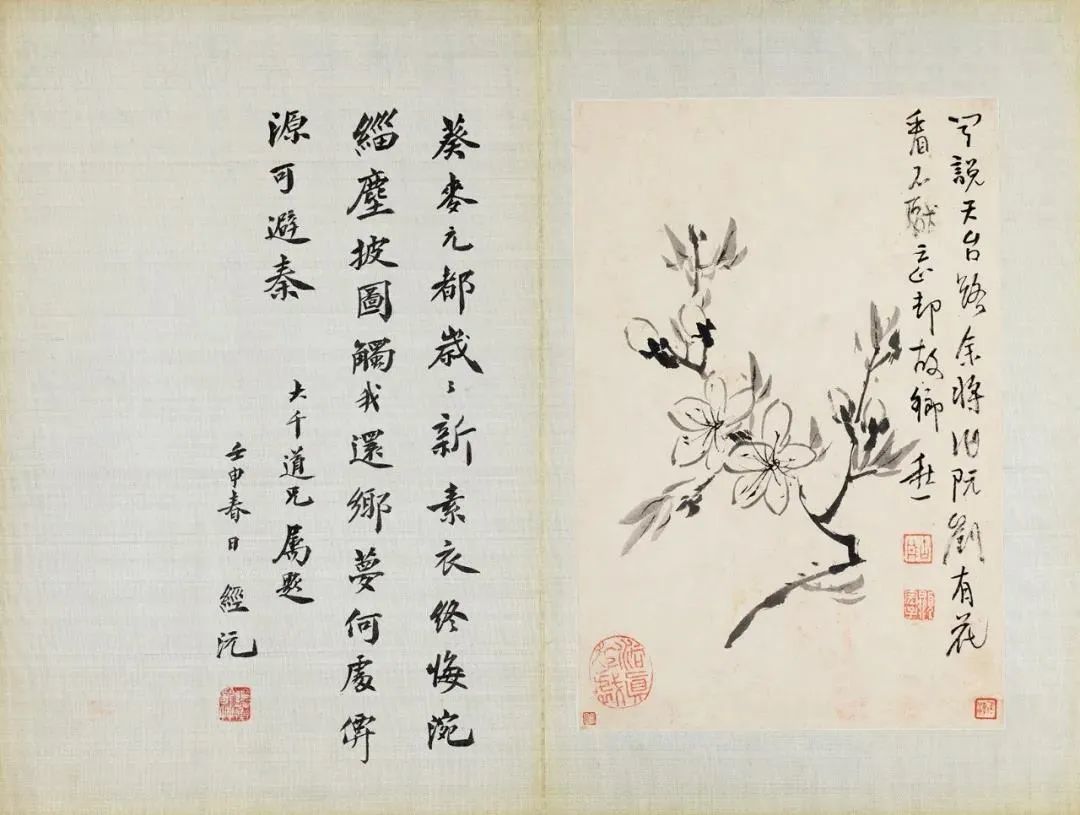 聞說天台路余將阮劉有花
看不厭忘却故鄉
葵麥元都歲〻新素衣終悔涴
緇塵披圖觸我還鄉夢何處僊
源可避秦
大千道兄屬題
壬申春日 經沅